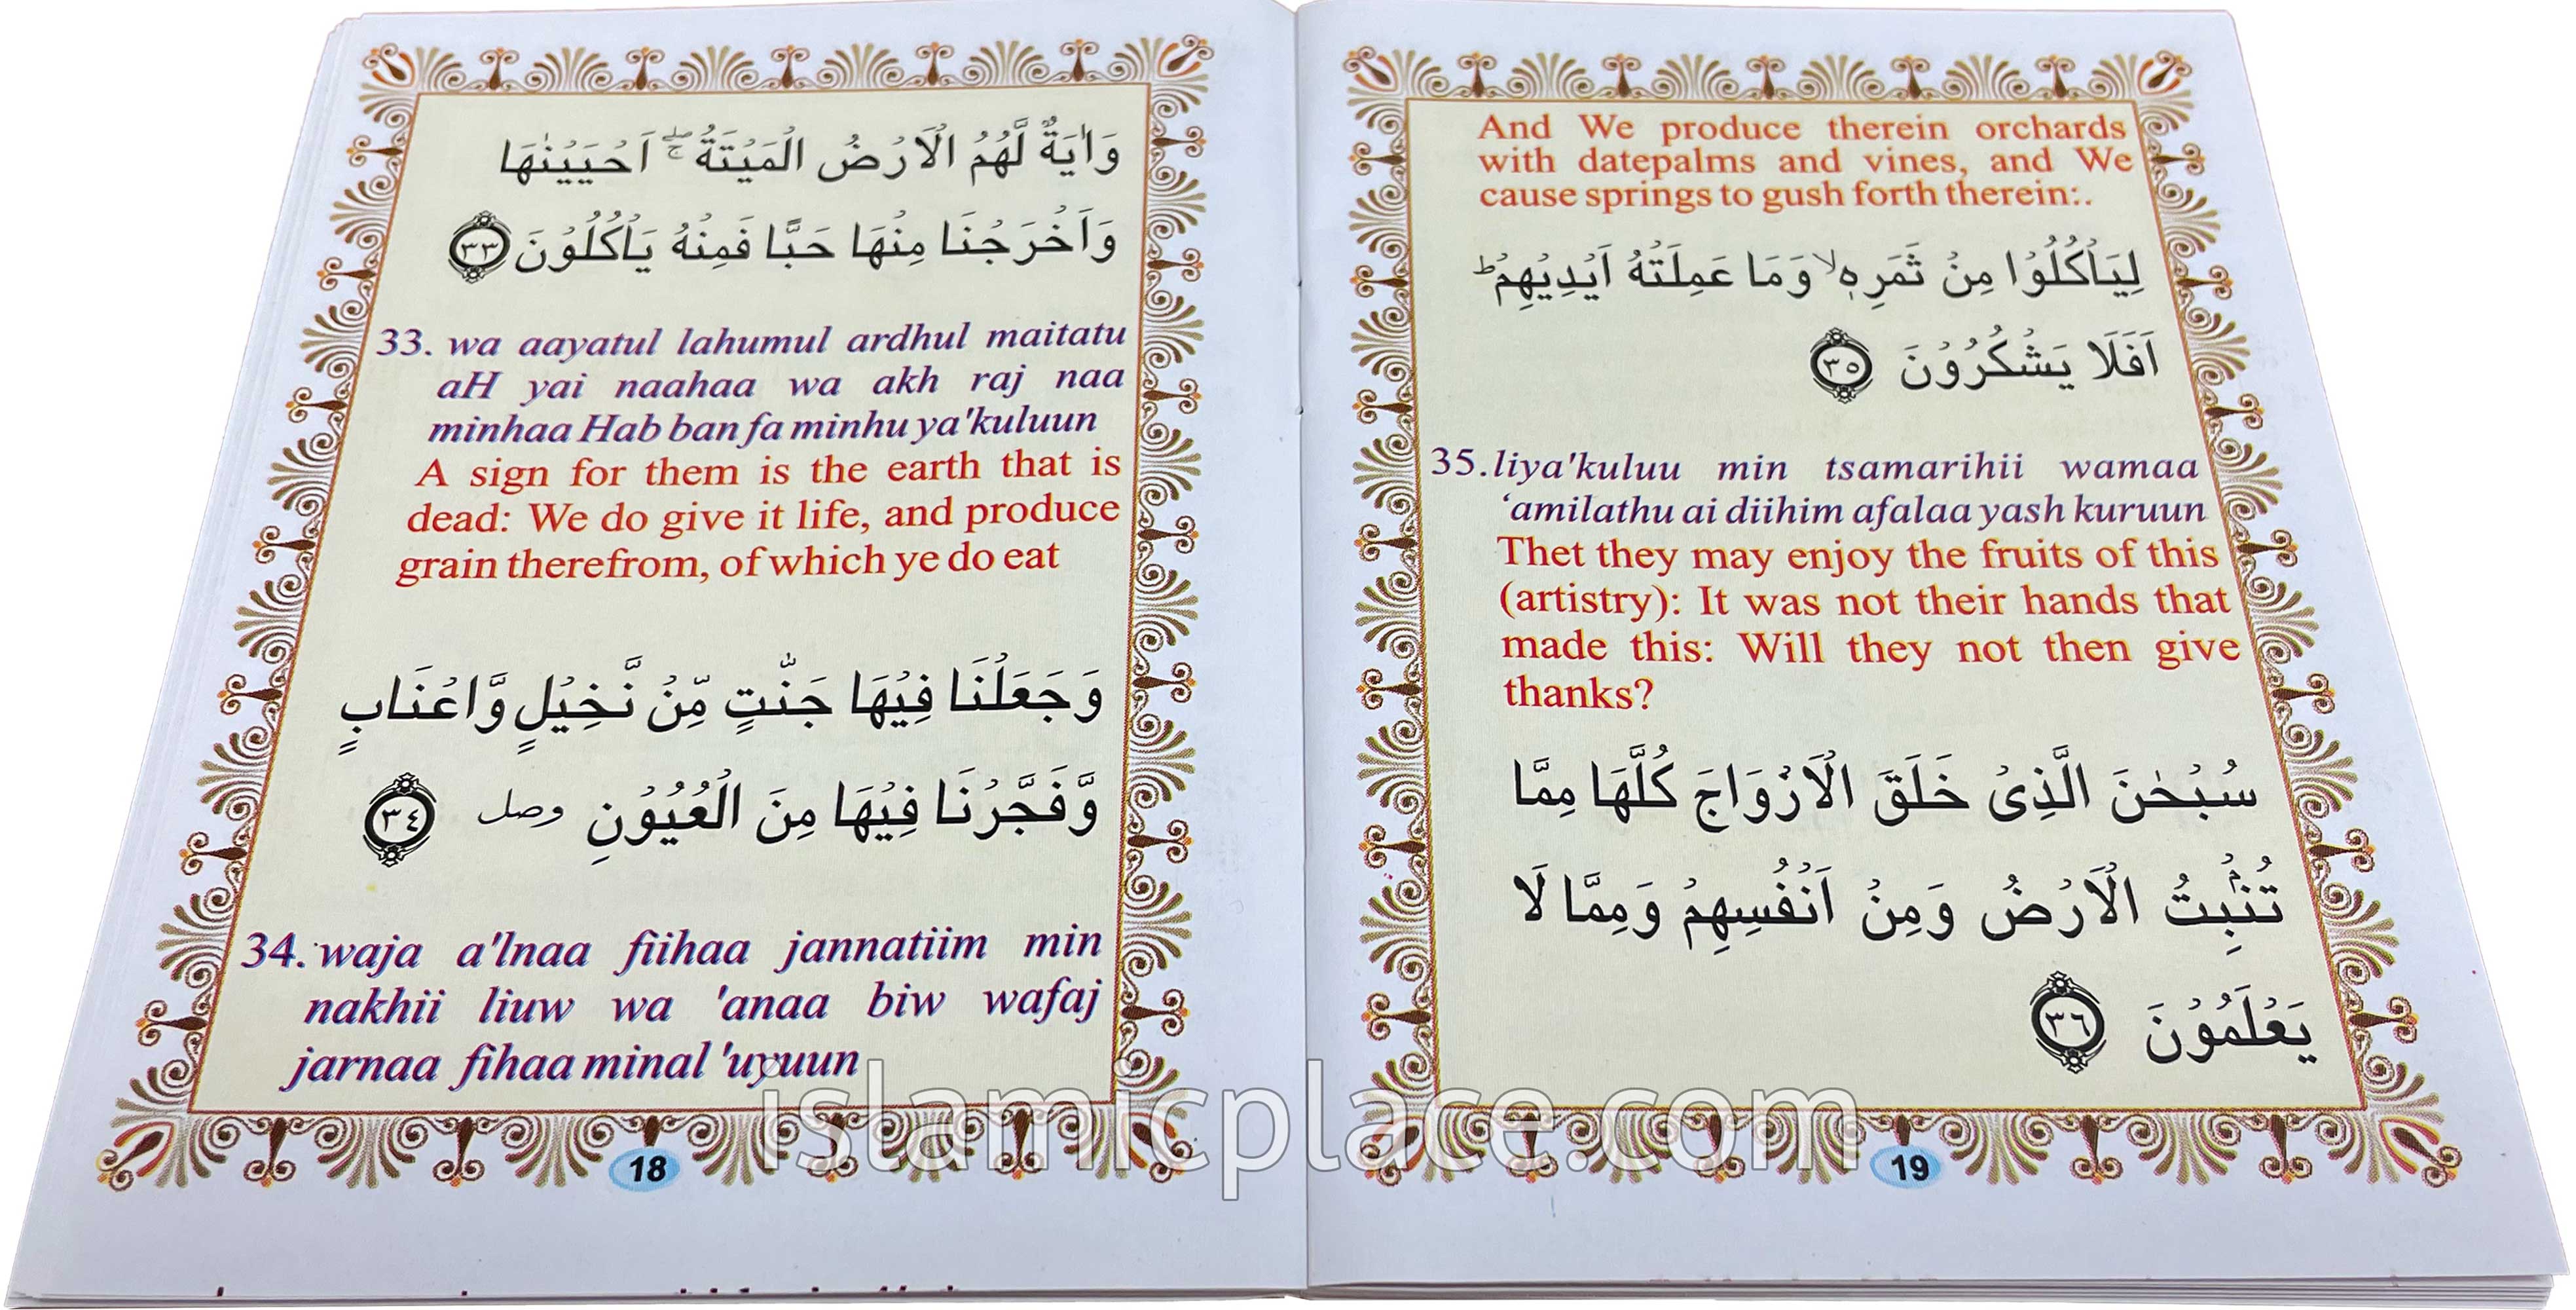 وَاٰيَةٌ لَّهُمُ الْاَرْضُ الْمَيْتَةُ ۖۚ اَحْيَيْنٰهَا
وَاَخْرَجْنَا مِنْهَا حَبًّا فَمِنْهُ يَأْكُلُوْنَ ٣٣
33. wa aayatul lahumul ardhul maitatu
aH yai naahaa wa akh raj naa
minhaa Hab ban fa minhu ya'kuluun
A sign for them is the earth that is
dead: We do give it life, and produce
grain therefrom, of which ye do eat
وَجَعَلْنَا فِيْهَا جَنّٰتٍ مِّنْ نَّخِيْلٍ وَّاَعْنَابٍ
وَّفَجَّرْنَا فِيْهَا مِنَ الْعُيُوْنِ وصل ٣٤
34. waja a'lnaa fiihaa jannatiim min
nakhii liuw wa 'anaa biw wafaj
jarnaa fihaa minal 'uyuun
18
And We produce therein orchards
with datepalms and vines, and We
cause springs to gush forth therein:.
لِيَأْكُلُوْا مِنْ ثَمَرِهٖ ۙ وَمَا عَمِلَتْهُ اَيْدِيْهِمْ ۗ
اَفَلَا يَشْكُرُوْنَ ٣٥
35. liya'kuluu min tsamarihii wamaa
‘amilathu ai diihim afalaa yash kuruun
Thet they may enjoy the fruits of this
(artistry): It was not their hands that
made this: Will they not then give
thanks?
سُبْحٰنَ الَّذِىْ خَلَقَ الْاَزْوَاجَ كُلَّهَا مِمَّا
تُنْۢبِتُ الْاَرْضُ وَمِنْ اَنْفُسِهِمْ وَمِمَّا لَا
يَعْلَمُوْنَ ٣٦
19
islamicplace.com